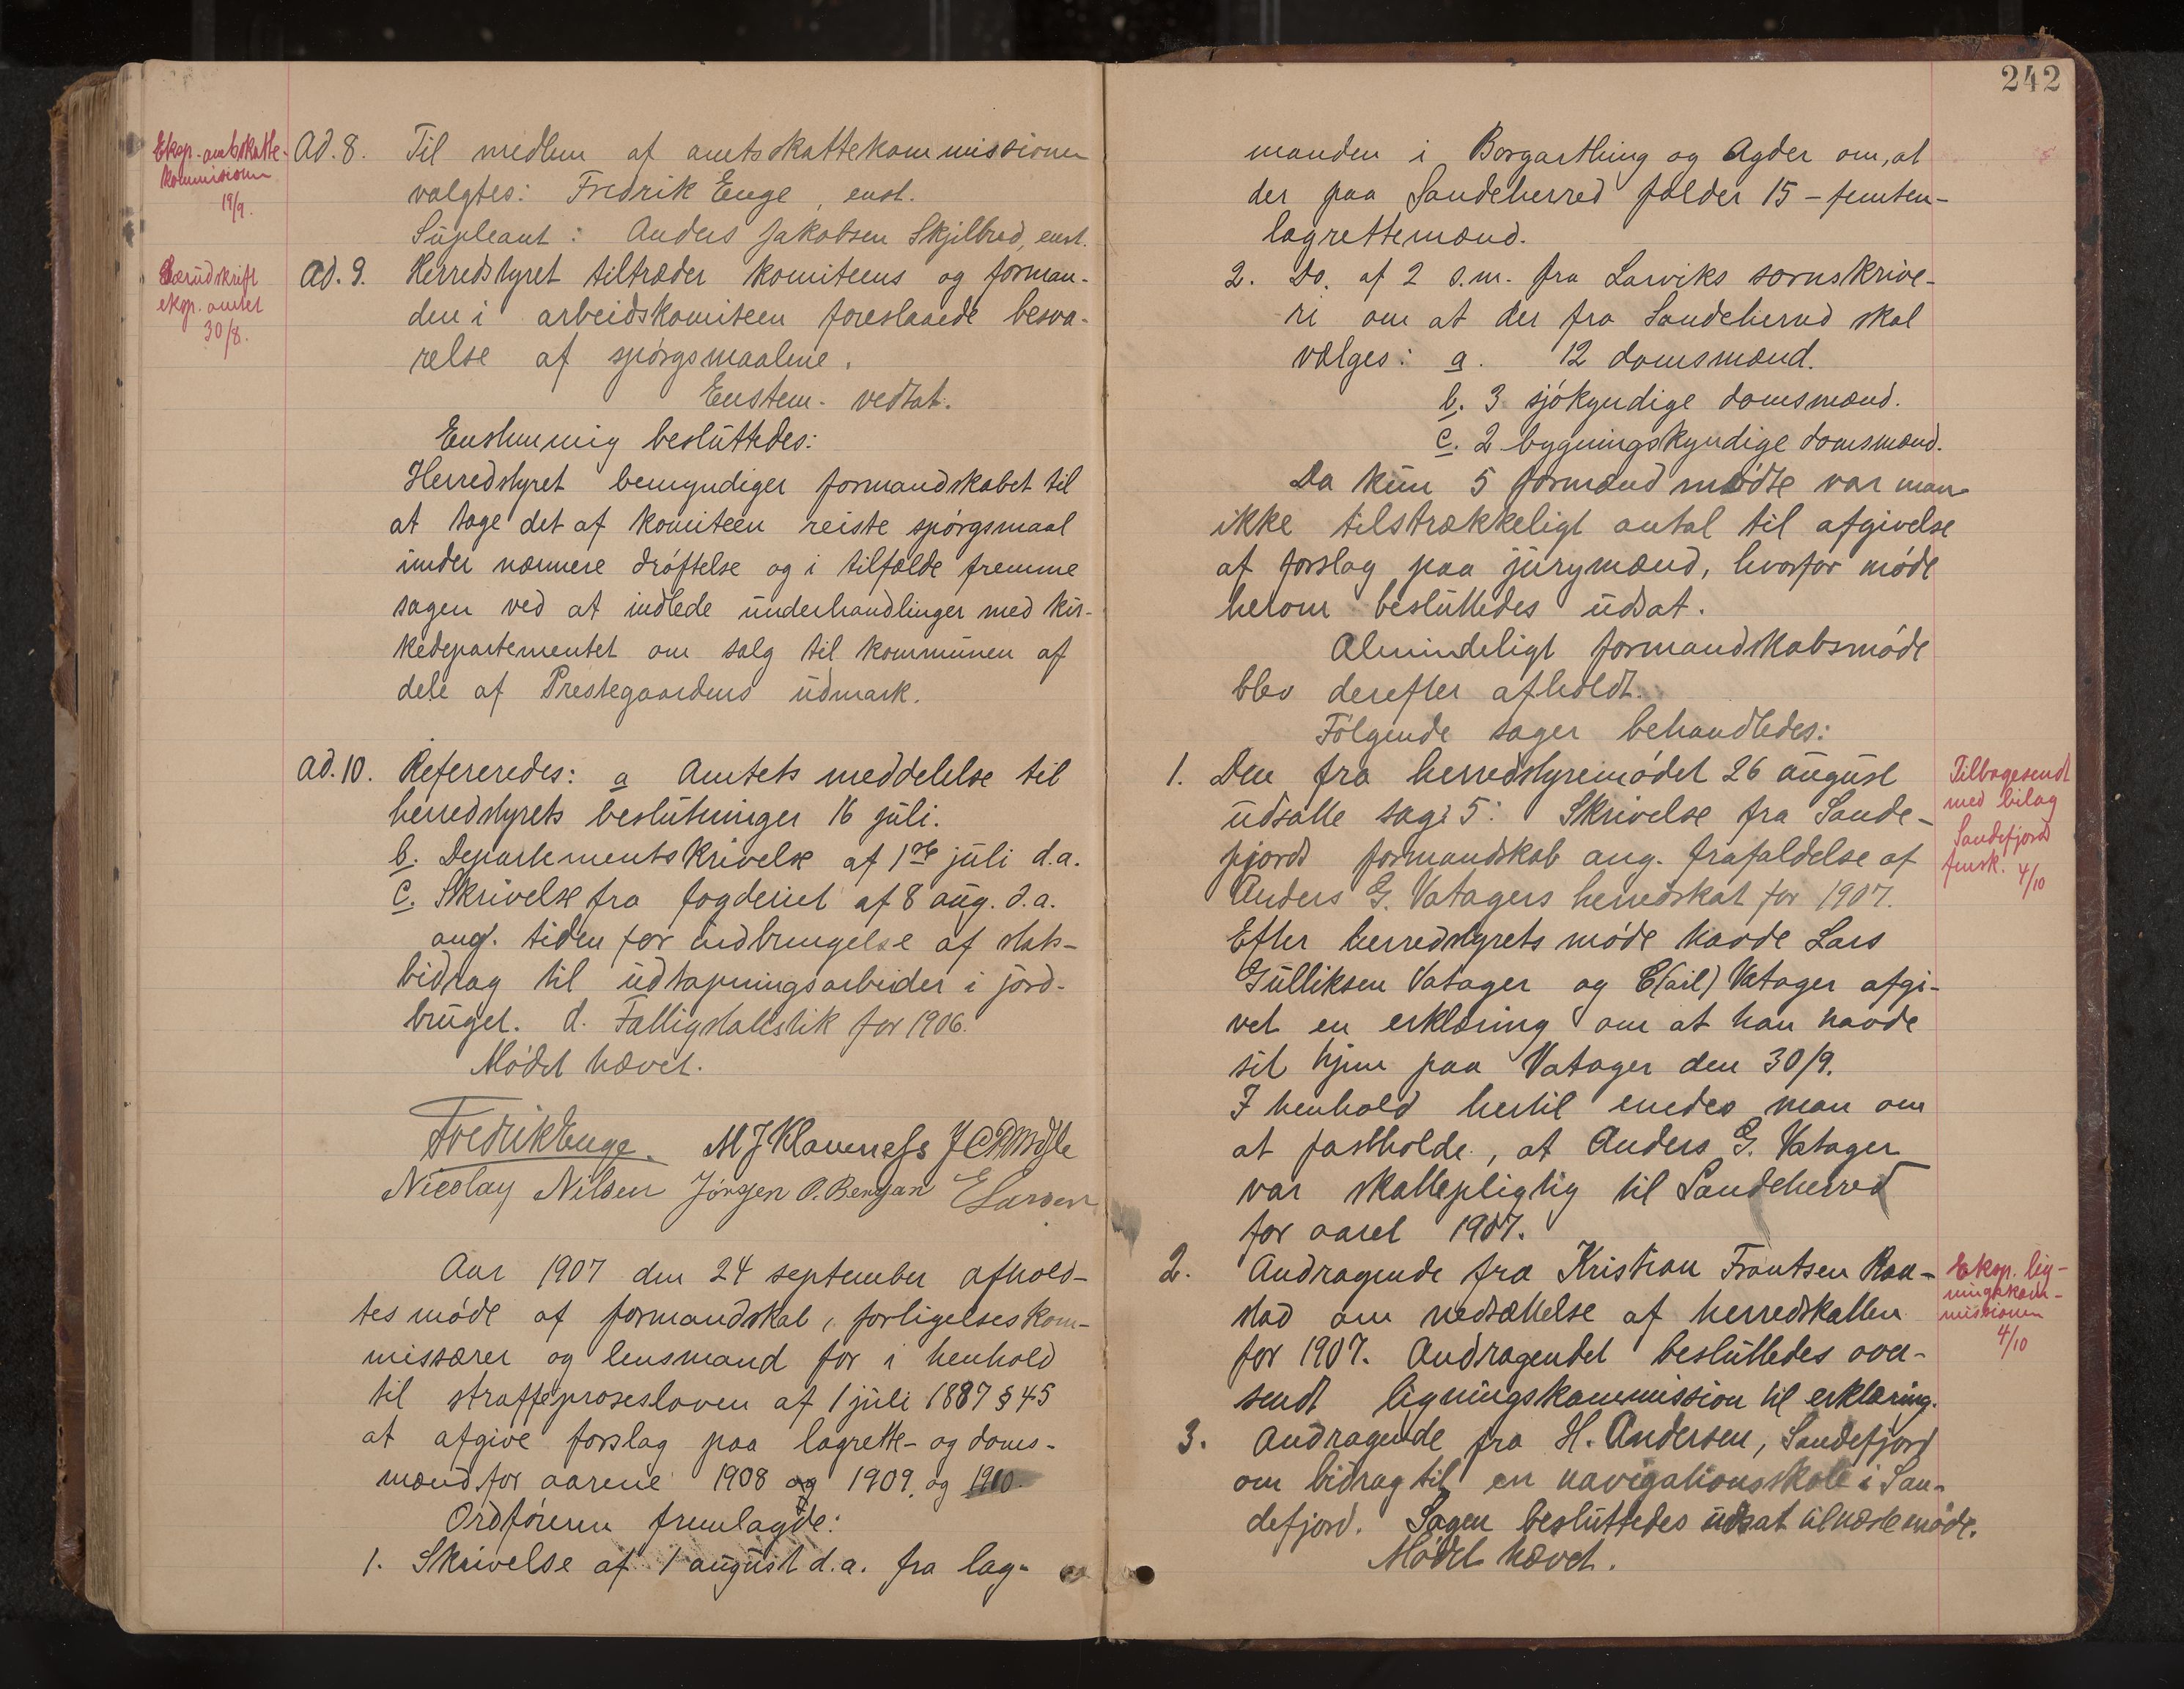 Eksp. amtskatte-
kommissionen
19/9.
Ad. 8. Til medlem af amtsskattekommissionen
valgtes: Fredrik Enge, enst.
Supleant: Anders Jakobsen Skjelbred, enst.
Særudskrift
eksp. amtet
30/8.
Ad. 9. Herredstyret tiltræder komiteens og forman-
den i arbeidskomiteen foreslaaede besva-
relse af spørgsmaalene.
Enstem. vedtat.
Enstemmig besluttedes:
Herredstyret bemyndiger formandskabet til
at tage det af komiteen reiste spørgsmaal
under nærmere drøftelse og i tilfælde fremme
sagen ved at indlede underhandlinger med kir-
kedepartementet om salg til kommunen af
dele af Prestegaardens udmark.
Ad. 10. Refereredes: a Amtets meddelelse til
herredstyrets beslutninger 16 juli.
b. Departementskrivelse af 1ste juli d.a.
c. Skrivelse fra fogderiet af 8 aug. d.a.
ang. tiden for indbringelse af stats-
bidrag til udtapningsarbeider i jord-
bruget. d. Fattigstatestik for 1906.
Mødet hævet.
Fredrik Enge. M J Klaveness
Nicolay Nilsen Jørgen O. Bergan E Larsen
Aar 1907 den 24 september afhold-
tes møde af formandskab, forligelseskom-
missærer og lensmand for i henhold
til straffeprosesloven af 1 juli 1887 § 45
at afgive forslag paa lagrette- og doms-
mænd for aarene 1908 og 1909. og 1910.
Ordføreren fremlagde:
1. Skrivelse af 1 august d.a. fra lag-
242
manden i Borgarthing og Agder om, at
der paa Sandeherred falder 15 - femten-
lagrettemænd.
2. Do. af 2 s.m. fra Larviks sornskrive-
ri om at der fra Sandeherred skal
vælges: a. 12 domsmænd.
b. 3 sjøkyndige domsmænd.
c. 2 bygningskyndige domsmænd.
Da kun 5 formænd mødte var man
ikke tilstrækkeligt antal til afgivelse
af forslag paa jurymænd, hvorfor møde
herom besluttedes udsat.
Almindeligt formandskabsmøde
blev derefter afholdt.
Følgende sager behandledes:
1. Den fra herredstyremødet 26 august
udsatte sag: 5: Skrivelse fra Sande-
fjords formandskab ang. frafaldelse af
Anders G. Vatagers herredskat for 1907.
Efter herredstyrets møde havde Lars
Gulliksen Vatager og C(aril) Vatager afgi-
vet en erklæring om at han havde
sit hjem paa Vatager den 30/9.
I henhold hertil enedes man om
at fastholde, at Anders G. Vatager
var skattepligtig til Sandeherred
for aaret 1907.
Tilbagesendt
med bilag
Sandefjord
fmsk. 4/10
2. Andragende fra Kristian Frantsen Raa-
stad om nedsættelse af herredskatten
for 1907. Andragendet besluttedes over-
sendt ligningskommission til erklæring.
Eksp. lig-
ningskom-
missionen
4/10
3. Andragende fra H. Andersen, Sandefjord
om bidrag til en navigationsskole i San-
defjord. Sagen besluttedes udsat til næste møde.
Mødet hævet.